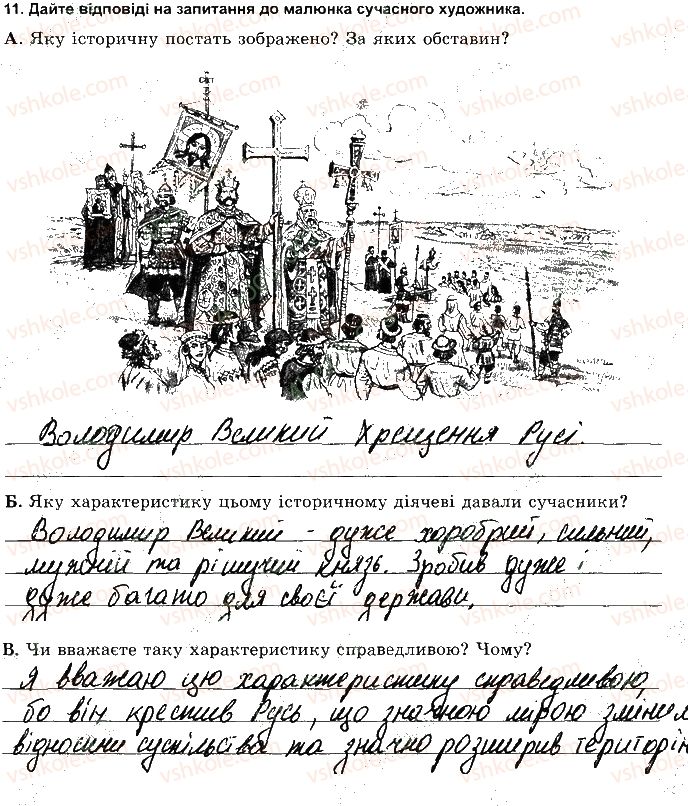 11. Дайте відповіді на запитання до малюнка сучасного художника.
А. Яку історичну постать зображено? За яких обставин?
Володимир Великий Хрещення Русі.
Б. Яку характеристику цьому історичному діячеві давали сучасники?
Володимир Великий - дуже хоробрий, сильний,
мужній та рішучий князь. Зробив дуже і
дуже багато для своєї держави.
В. Чи вважаєте таку характеристику справедливою? Чому?
Я вважаю цю характеристику справедливою,
бо він крестив Русь, що значною мірою зміни
відносини суспільства та значно розширив територі